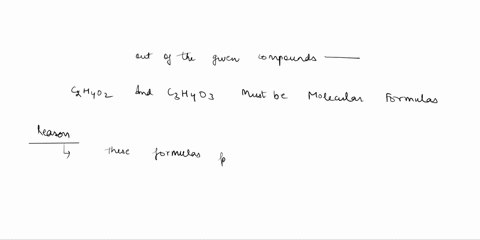 out of the given compounds ——
C2H4O2 And C3H4O3 Must be Molecular Formulas
Reason
↳ these formulas p